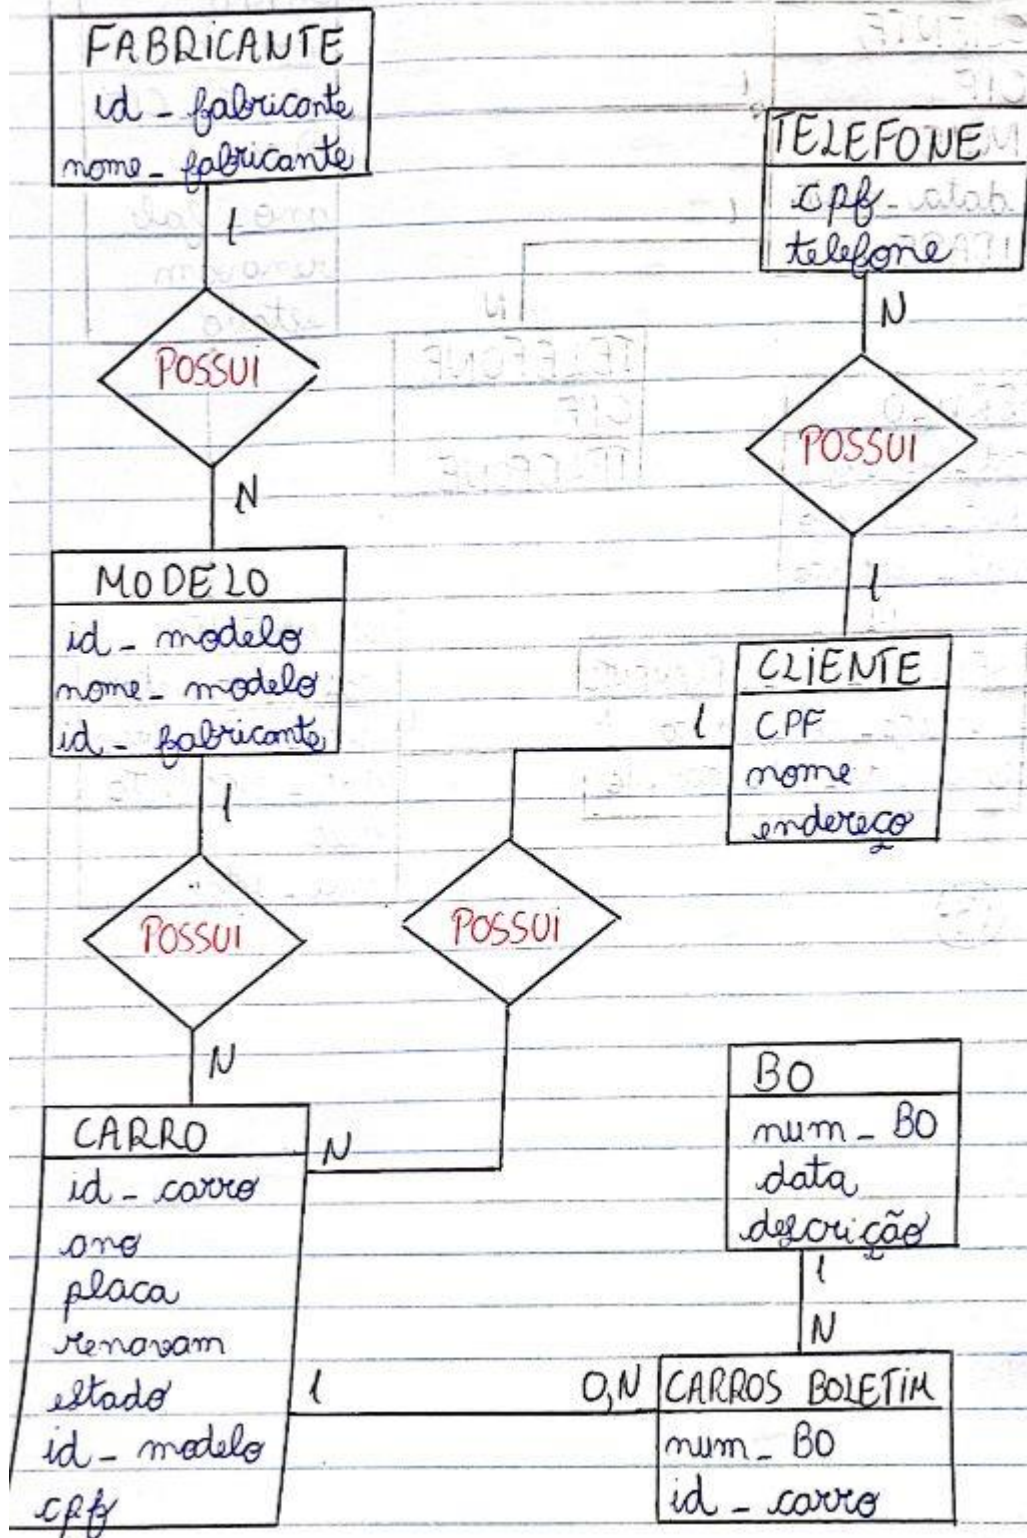 FABRICANTE
id_fabricante
nome_fabricante
1
POSSUI
N
MODELO
id_modelo
nome_modelo
id_fabricante
1
POSSUI
N
CARRO
id_carro
ano
placa
renavam
estado
id_modelo
cpf
TELEFONE
cpf
telefone
N
POSSUI
1
CLIENTE
CPF
nome
endereço
1
POSSUI
N
BO
num_BO
data
descrição
1
N
1
0,N
CARROS BOLETIM
num_BO
id_carro